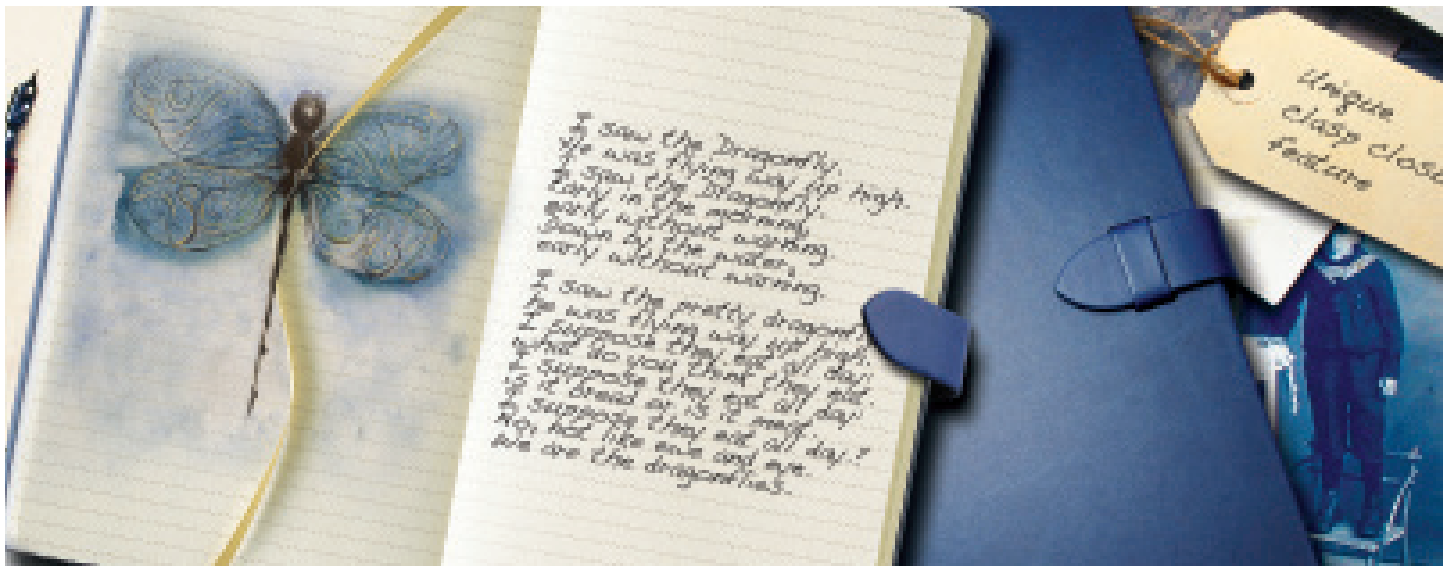 I saw the Dragonfly.
He was flying way up high.
I saw the Dragonfly.
Early in the morning
early without warning.
Down by the water,
early without warning.
I saw the pretty dragonfly
he was flying way up high.
I suppose they eat all day.
What do you think they eat,
I suppose they eat all day.
Is it bread or is it meat.
I suppose they eat all day.?
No, not like ewe and eye.
We are the dragonflies.
Unique
clasp closu
feature